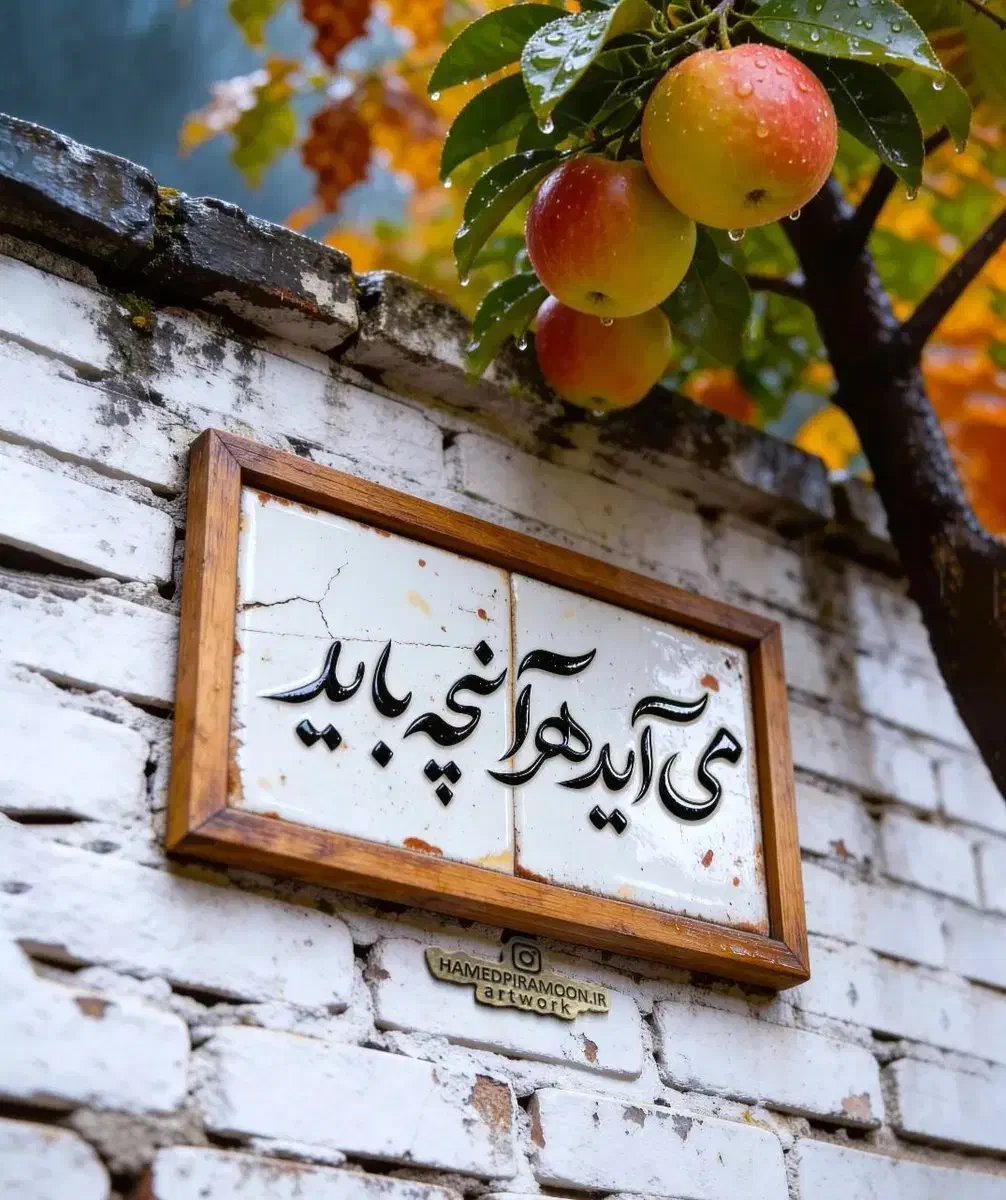 می آید هر آنچه باید
HAMEDPIRAMOON.IR
artwork